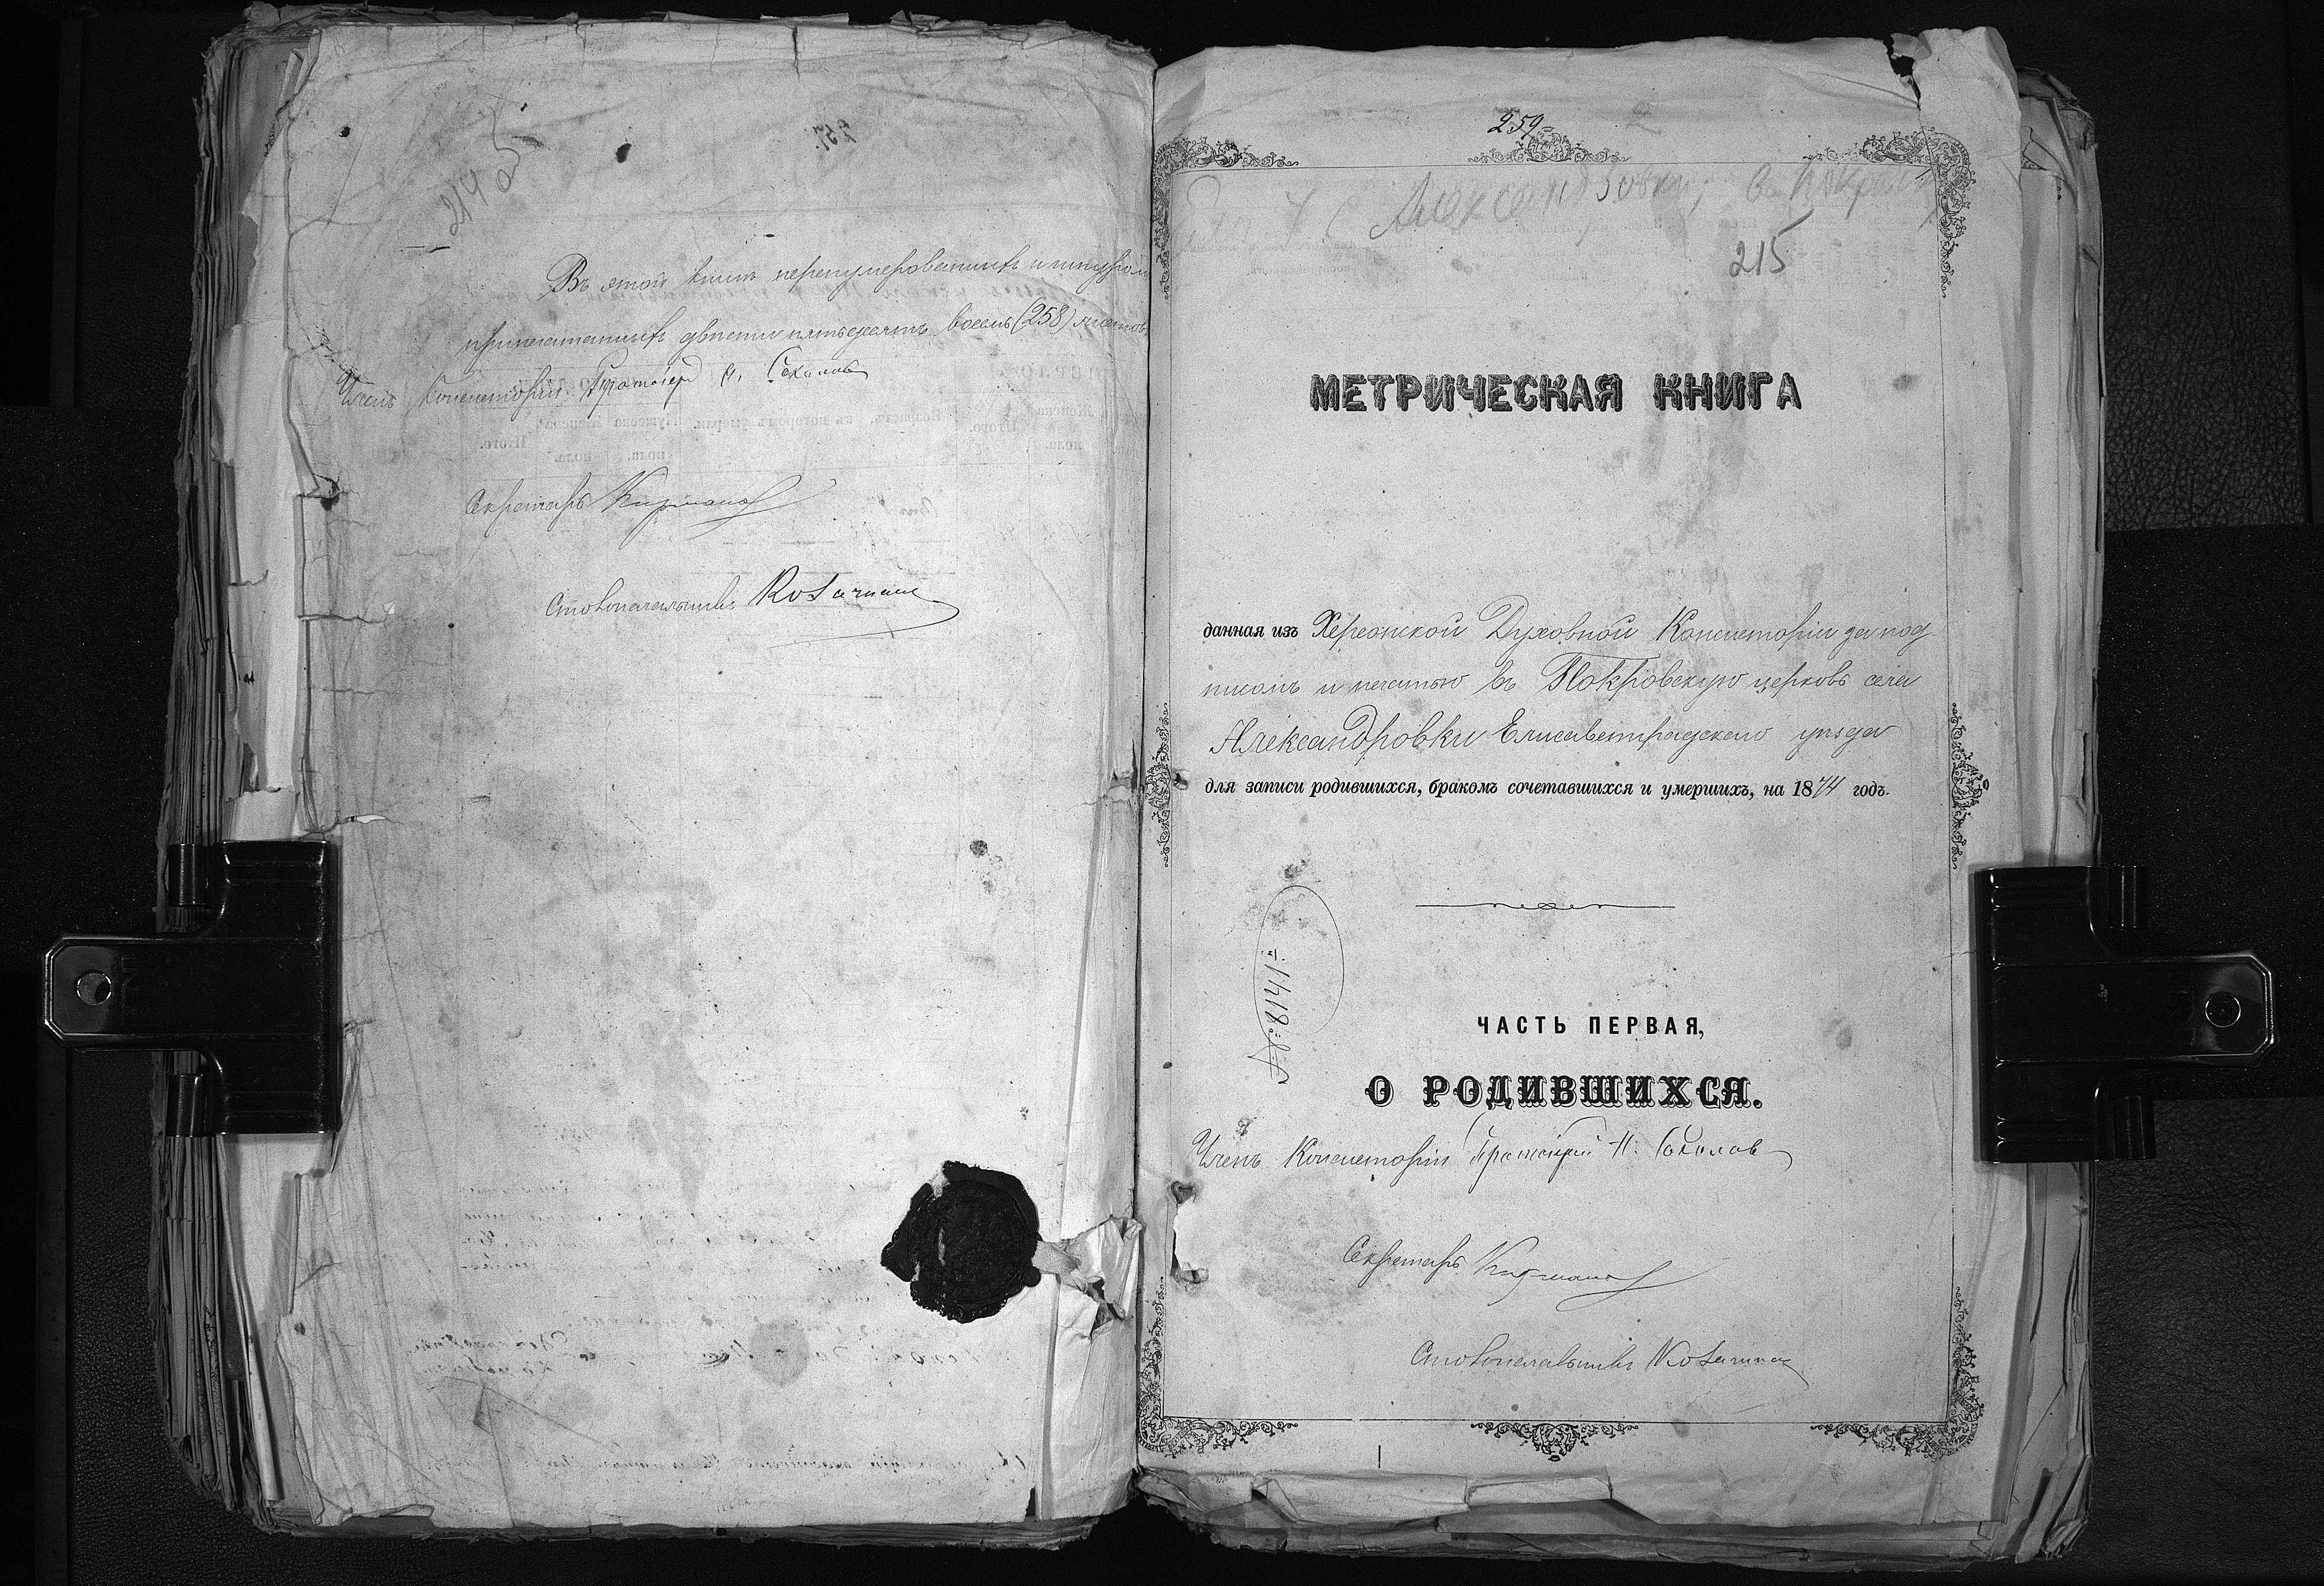 214 об
257.
Въ этой книгѣ перенумерованныхъ и шнуром
припечатанныхъ двѣсти пятьдесятъ восемь (258) листовъ
Членъ Консисторіи Протоіерей Н. Соколовъ
Секретарь
Столоначальникъ
259
с Александровки,
215
МЕТРИЧЕСКАЯ КНИГА
данная изъ Херсонской Духовной Консисторіи за под
писомъ и печатью въ Покровскую церковь села
Александровки Елисаветградскаго уѣзда
для записи родившихся, бракомъ сочетавшихся и умершихъ, на 1874 годъ.
№ 8141
ЧАСТЬ ПЕРВАЯ,
О РОДИВШИХСЯ.
Членъ Консисторіи Протоіерей Н. Соколовъ
Секретарь
Столоначальникъ